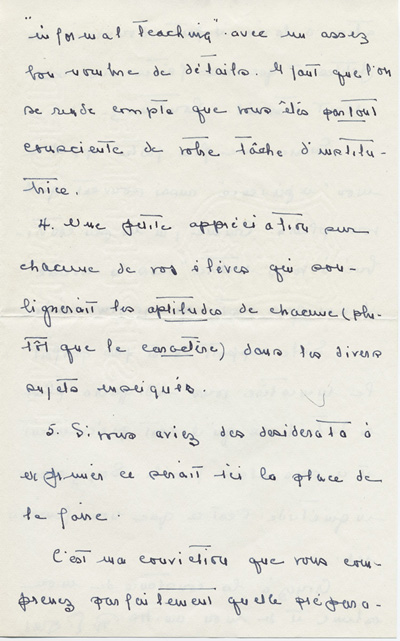 "informal teaching" avec un assez
bon nombre de détails. Il faut que l'on
se rende compte que vous êtes partout
consciente de votre tâche d'institu-
trice.
4. Une petite appréciation sur
chacune de vos élèves qui sou-
lignerait les aptitudes de chacune (plu-
tôt que le caractère) dans les divers
sujets enseignés.
5. Si vous aviez des desiderata à
exprimer ce serait ici la place de
le faire.
C'est ma conviction que vous com-
prenez parfaitement quelle prépara-